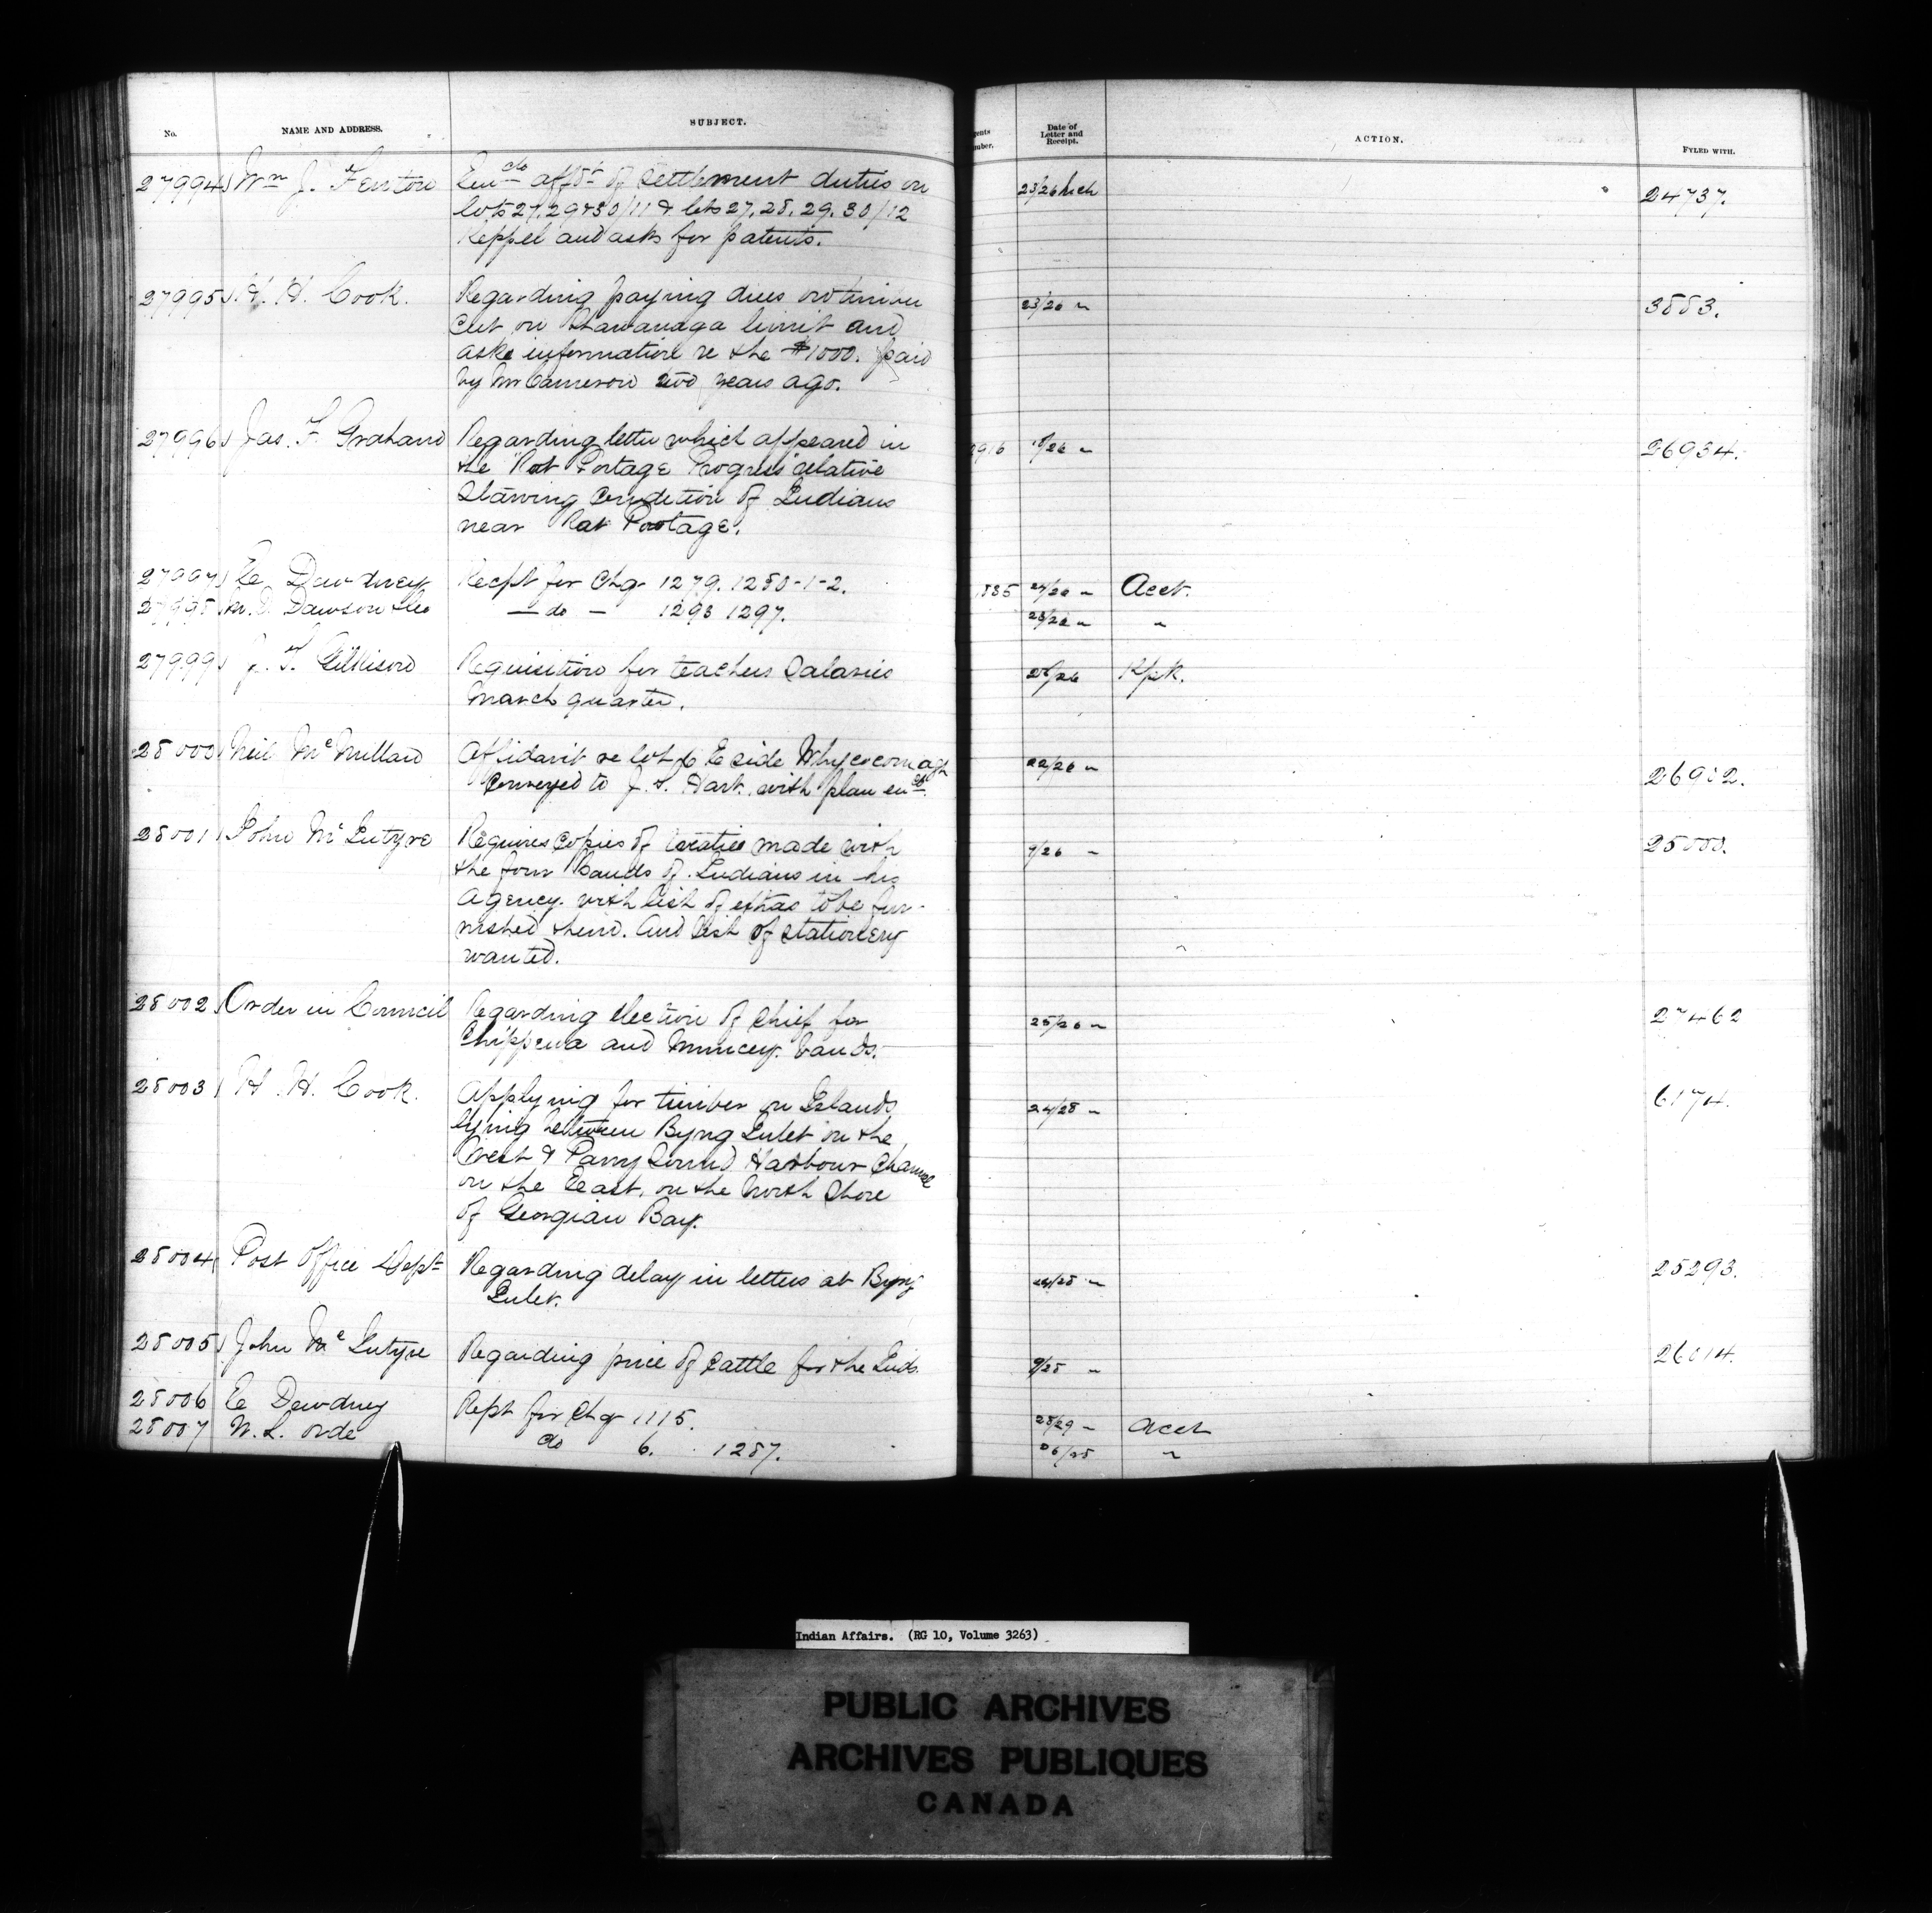 No. NAME AND ADDRESS. SUBJECT. Date of Letter and Receipt. ACTION. FYLED WITH.
27994 Wm J. Fenton Encclo affdt of settlement duties on 23/26 Mch 24737.
lots 27. 29 & 30/11 & lots 27. 28. 29. 30/12
Keppel and asks for patents.
27995 H. H. Cook. Regarding paying dues on timber 23/26 " 3883.
cut on Shawanaga limit and
asks information re the $1000. paid
by Mr Cameron two years ago.
27996 Jas. F. Graham Regarding letter which appeared in 2916 /26 " 26934.
the "Rat Portage Progress" relative
Starving Condition of Indians
near Rat Portage.
27997 E Dewdney Recpt for Chq 1279. 1280-1-2. 885 24/26 " Acct.
27998 Dawson — do — 1296 1297. 23/26 " "
27999 J. T. Gilkison Requisition for teachers Salaries 25/26 Rpk.
March quarter.
28000 Neil McMillan Affidavit re lot 6 E side Whycocomagh 22/26 " 26902.
Conveyed to J. S. Hart. with plan encl.
28001 John McIntyre Requires copies of treaties made with 9/26 " 25000.
the four Bands of Indians in his
Agency. with list of extras to be fur-
nished them. And list of stationery
wanted.
28002 Order in Council Regarding election of Chief for 25/26 " 27462
Chippewa and Muncey bands.
28003 H. H. Cook. Applying for timber on Islands 24/28 " 6174.
lying between Byng Inlet on the
West & Parry Sound Harbour Channel
on the East, on the North Shore
of Georgian Bay.
28004 Post Office Dept Regarding delay in letters at Byng 24/28 " 25293.
Inlet.
28005 John McIntyre Regarding price of Cattle for the Inds. 9/28 " 26014.
28006 E Dewdney Rcpt for Chq 1115. 23/29 " Acct
28007 W. L. Orde do 6. 1287. 26/28 "
Indian Affairs. (RG 10, Volume 3263)
PUBLIC ARCHIVES
ARCHIVES PUBLIQUES
CANADA